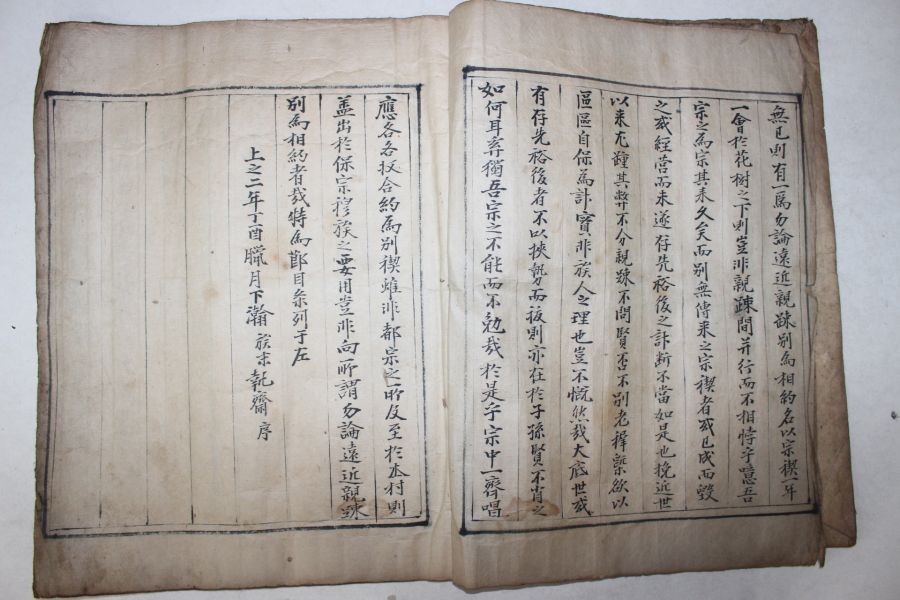 無已則有一焉勿論遠近親踈別爲相約名以宗稧一年
一會於花樹之下則豈非親踈間并行而不相悖乎噫吾
宗之爲宗其來久矣而別無傳來之宗稧者或已成而毀
之或經營而未遂存先裕後之計斷不當如是也挽近世
以來尤其弊不分親踈不問賢否不別老穉欲以
區區自保爲計實非族人之理也豈不慨然哉大底世或
有存先裕後者不以挾勢而扳則亦在於子孫賢不肖之
如何耳奔獨吾宗之不能而不勉哉於是乎宗中一齊唱
應各各拔合約爲別稧雖非都宗之一所及至於本村則
盖出於保宗穆族之要用豈非向所謂勿論遠近親踈
別爲相約者哉特爲節目条列于左
上之二年丁酉臘月下瀚 族末乾齋 序